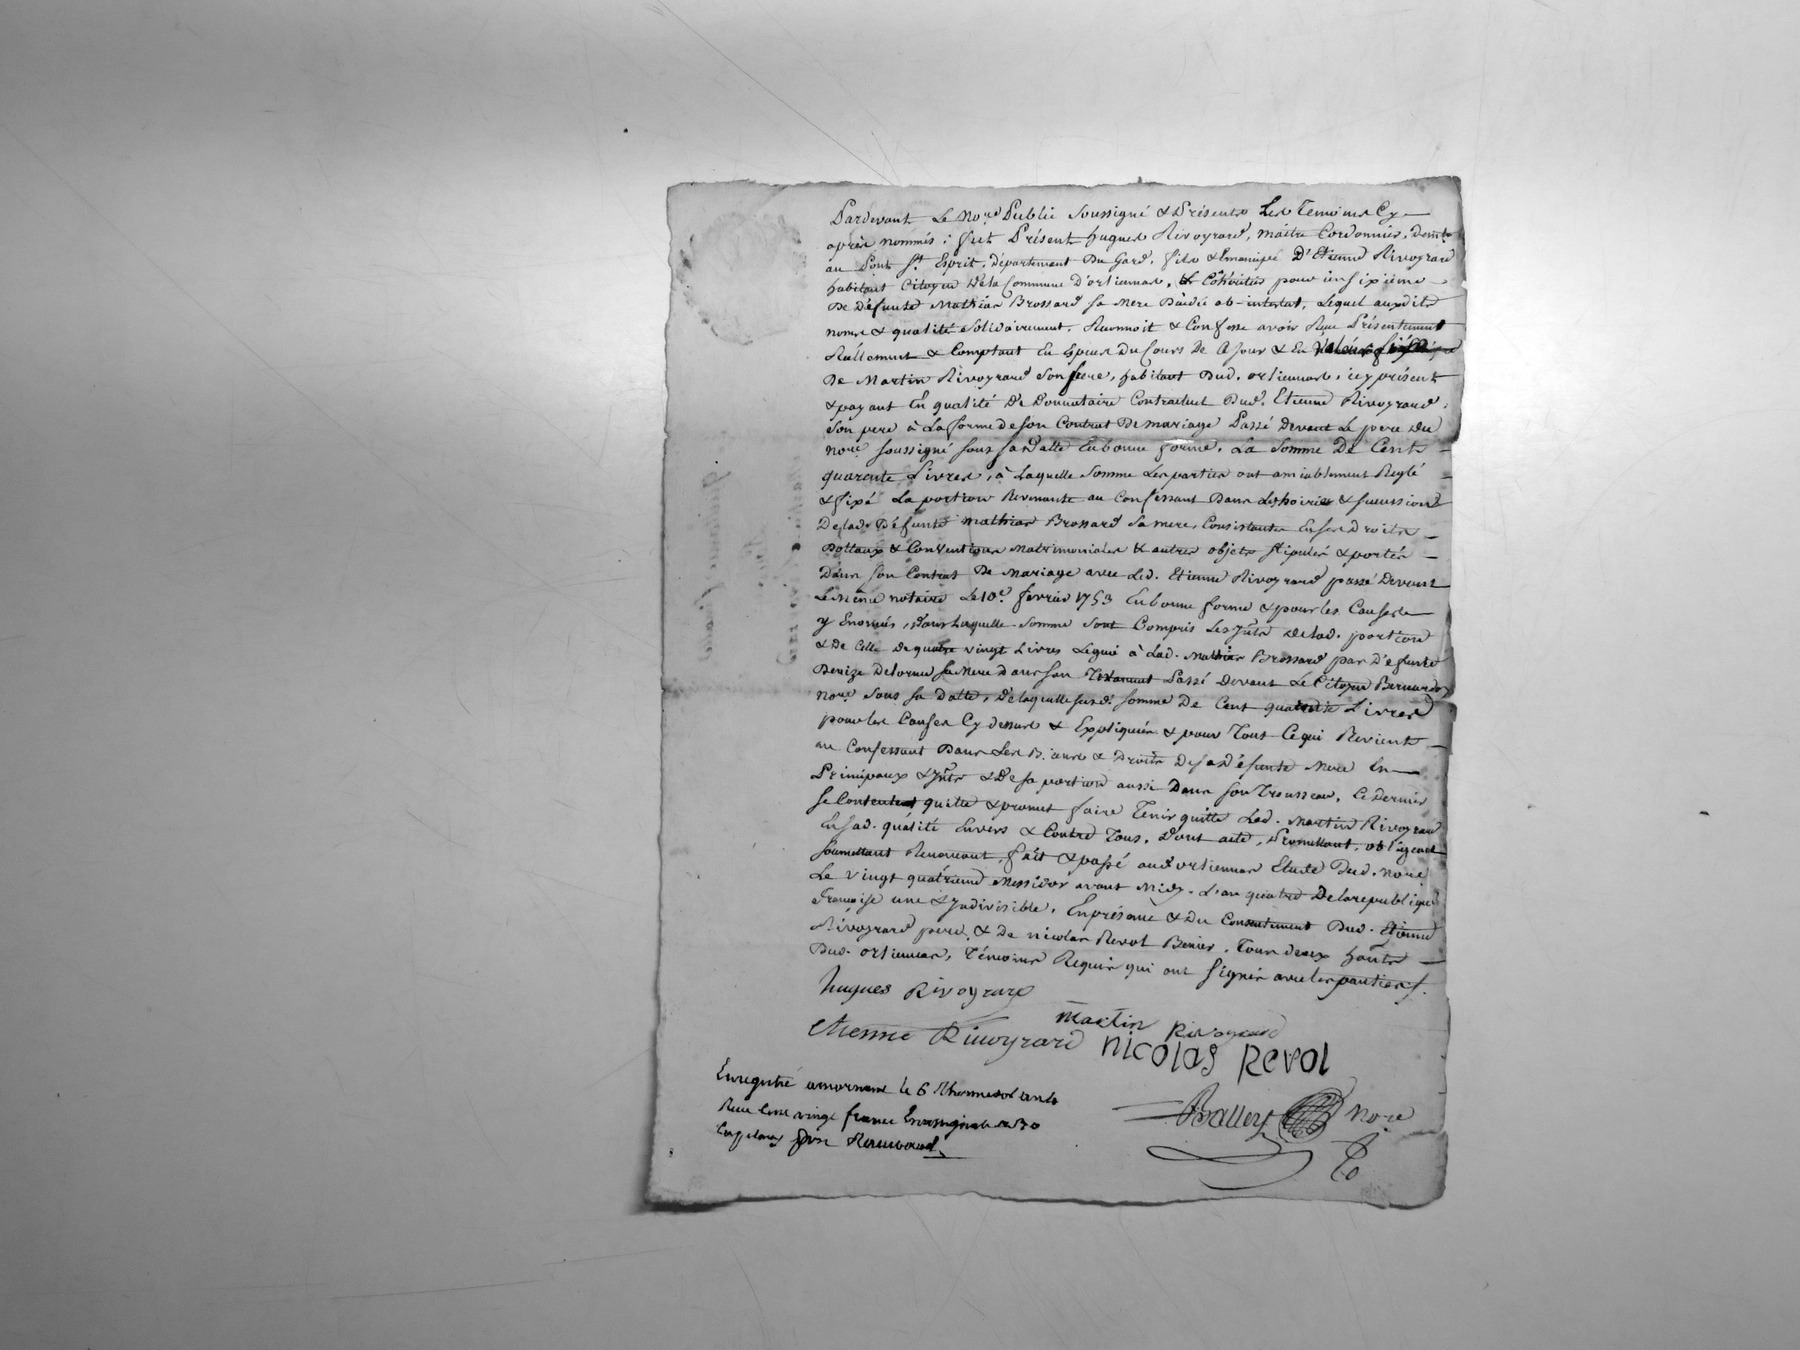 Pardevant Le Nore Public Soussigné & Présents Les Temoins Cy
après nommés ; fut Présent hugues Rivoyrard, maitre Cordonnier, demt
au Pont St Esprit, département Du Gard, fils & Emancipé D'Etienne Rivoyrard
habitant Citoyen Dela Commune D'orliennas, & Cohéritier pour un sixième
De Défunte Mathian Brossard sa Mere Décédée ab-intestat, Lequel auxdits
noms & qualité solidairement, Reconnoit & Confesse avoir Reçu Présentement
Réellement & Comptant En Especes Du Cours De Ce Jour & En
De Martin Rivoyrard son frere, habitant Dud. orliennas, icy présent
& payant En qualité De Donnataire Contractuel Dud. Etienne Rivoyrard
Son pere à La forme de son Contrat De mariage Passé Devant Le pere du
Nore soussigné sous sa Datte En bonne forme, La Somme De Cent
quarante Livres, à Laquelle Somme Les parties ont amiablement Reglé
& fixé La portion Revenante au Confessant Dans Les hoirie & succession
De lad. Défunte Mathian Brossard Sa mere, Consistantes En ses Droits
Dottaux & Conventions Matrimoniales & autres objets stipulés & portés
Dans son Contrat De Mariage avec Led. Etienne Rivoyrard passé Devant
Le Même notaire Le 10e. fevrier 1753 En bonne forme & pour les Causes
y Enoncés, Dans Laquelle Somme Sont Compris Les Jnts De lad. portion
& De Celle De quatre vingt Livres Legué à Lad. Mathian Brossard par Défunte
Benize Delorme sa Mere dans son Testament Passé Devant Le Citoyen
Nore Sous sa Datte, De laquelle susd. somme De Cent quarante Livres
pour les Causes Cy dessus & Expliquées & pour Tout Ce qui Revient
au Confessant Dans Les Biens & Droits De sa Défunte Mere En
Principaux & Jnts & De sa portion aussi Dans son Trousseau, Ce Dernier
se Contentant quitte & promet faire Tenir quitte Led. Martin Rivoyrard
En sad. qualité Envers & Contre Tous, Dont acte, Promettant, obligeant
soumettant Renonçant, fait & passé aud. orliennas Etude Dud. Nore
Le vingt quatrieme Messidor avant Midy. L'an quatre De la republique
Française une & Jndivisible, En présence & Du Consentement Dud. Etienne
Rivoyrard pere, & De nicolas Revol, Tous deux habts
Dud. orliennas, Témoins Requis qui ont signés avec les parties.
hugues Rivoyrard
Martin Rivoyrard
etienne Rivoyrard
nicolas Revol
Enregistré le 6 Thermidor an 4
Reçu Cent vingt francs
Balley Nore